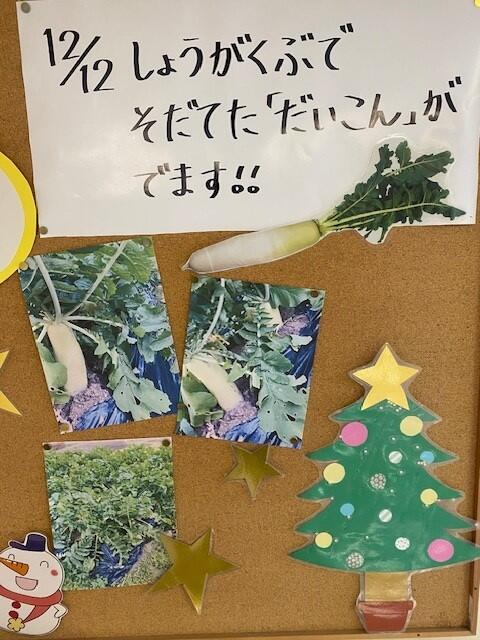 12/12 しょうがくぶで
そだてた「だいこん」が
でます!!